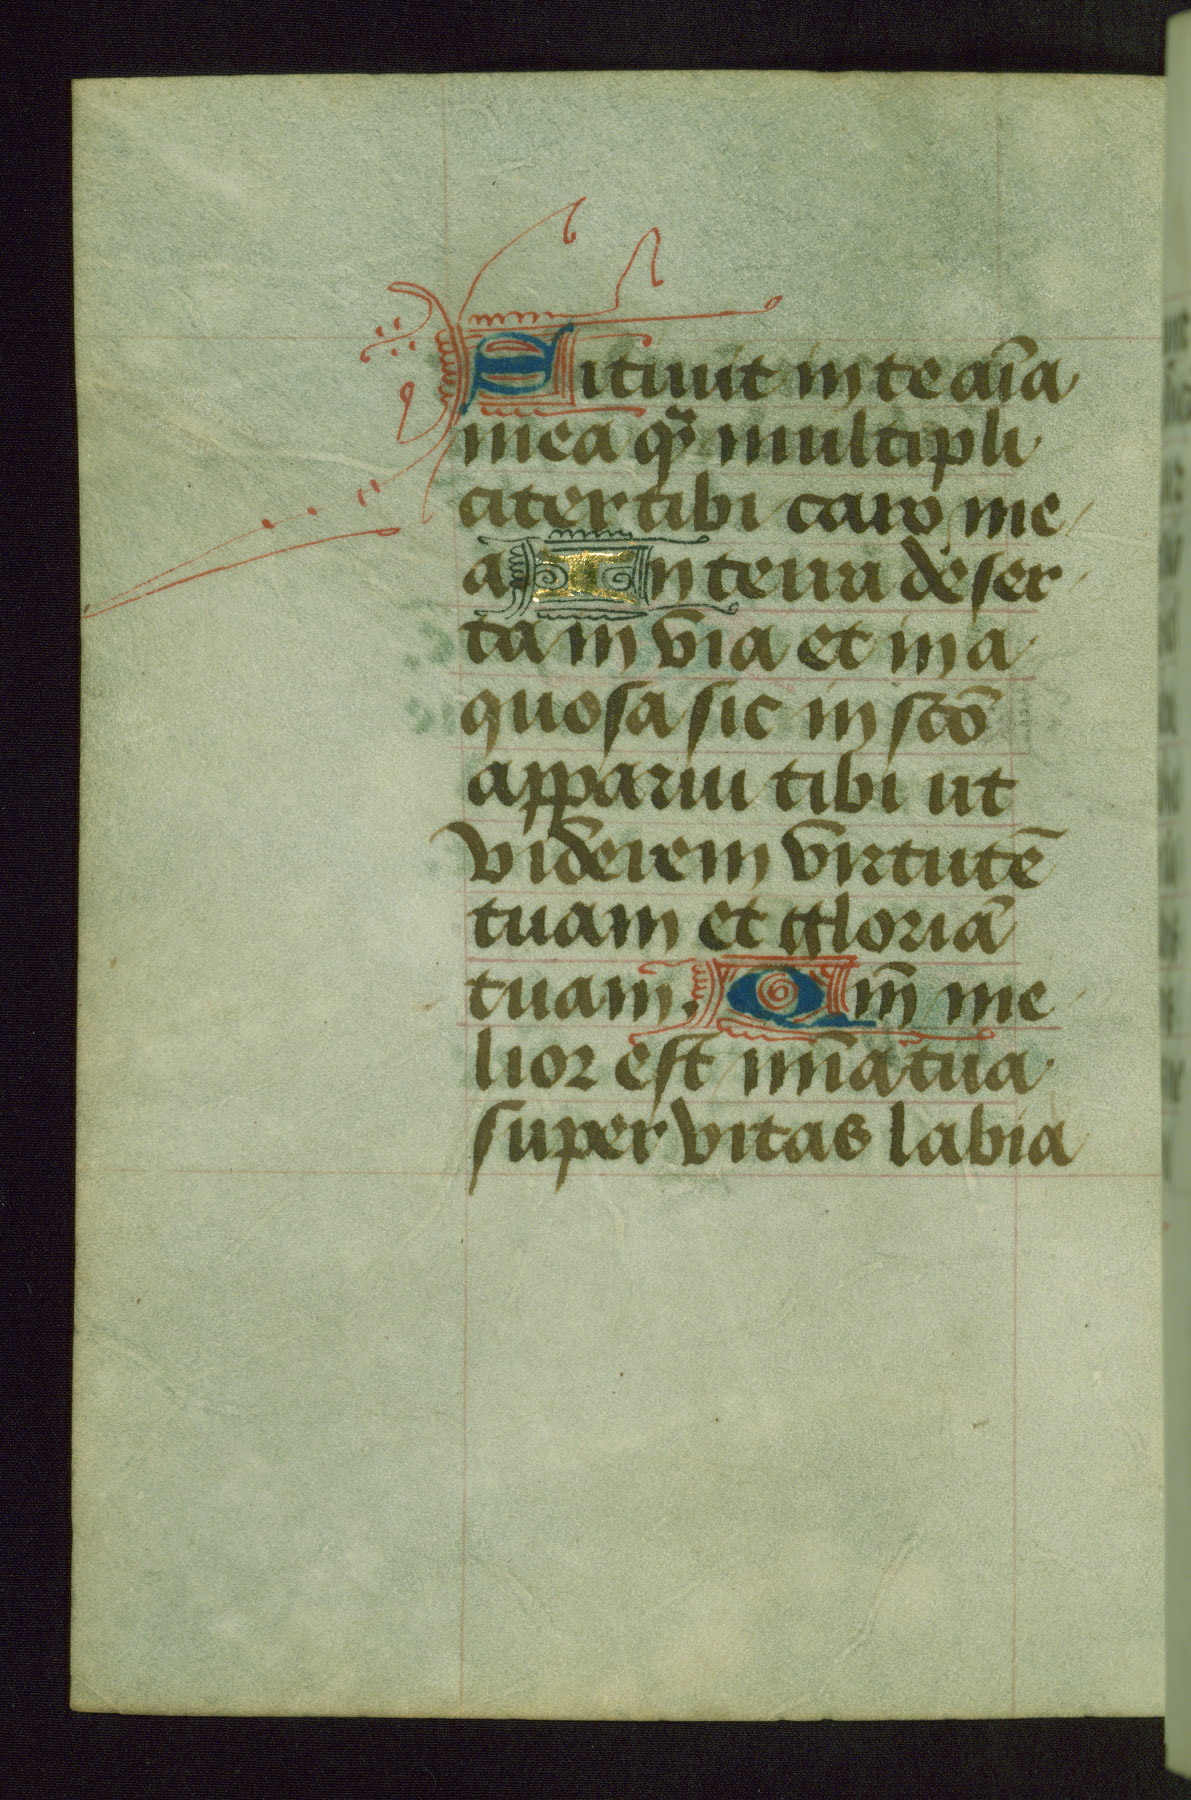 Sitiuit in te aīa
mea qͣ multipli
citer tibi caro me
a In terra deser
ta in via et in a
quosa sic in scō
apparui tibi ut
viderem virtutē
tuam et gloriā
tuam. Qm̄ me
lior est mīa tua
super vitas labia